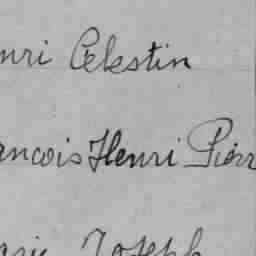 nri Célestin
ancois Henri Pierr
arie Joseph